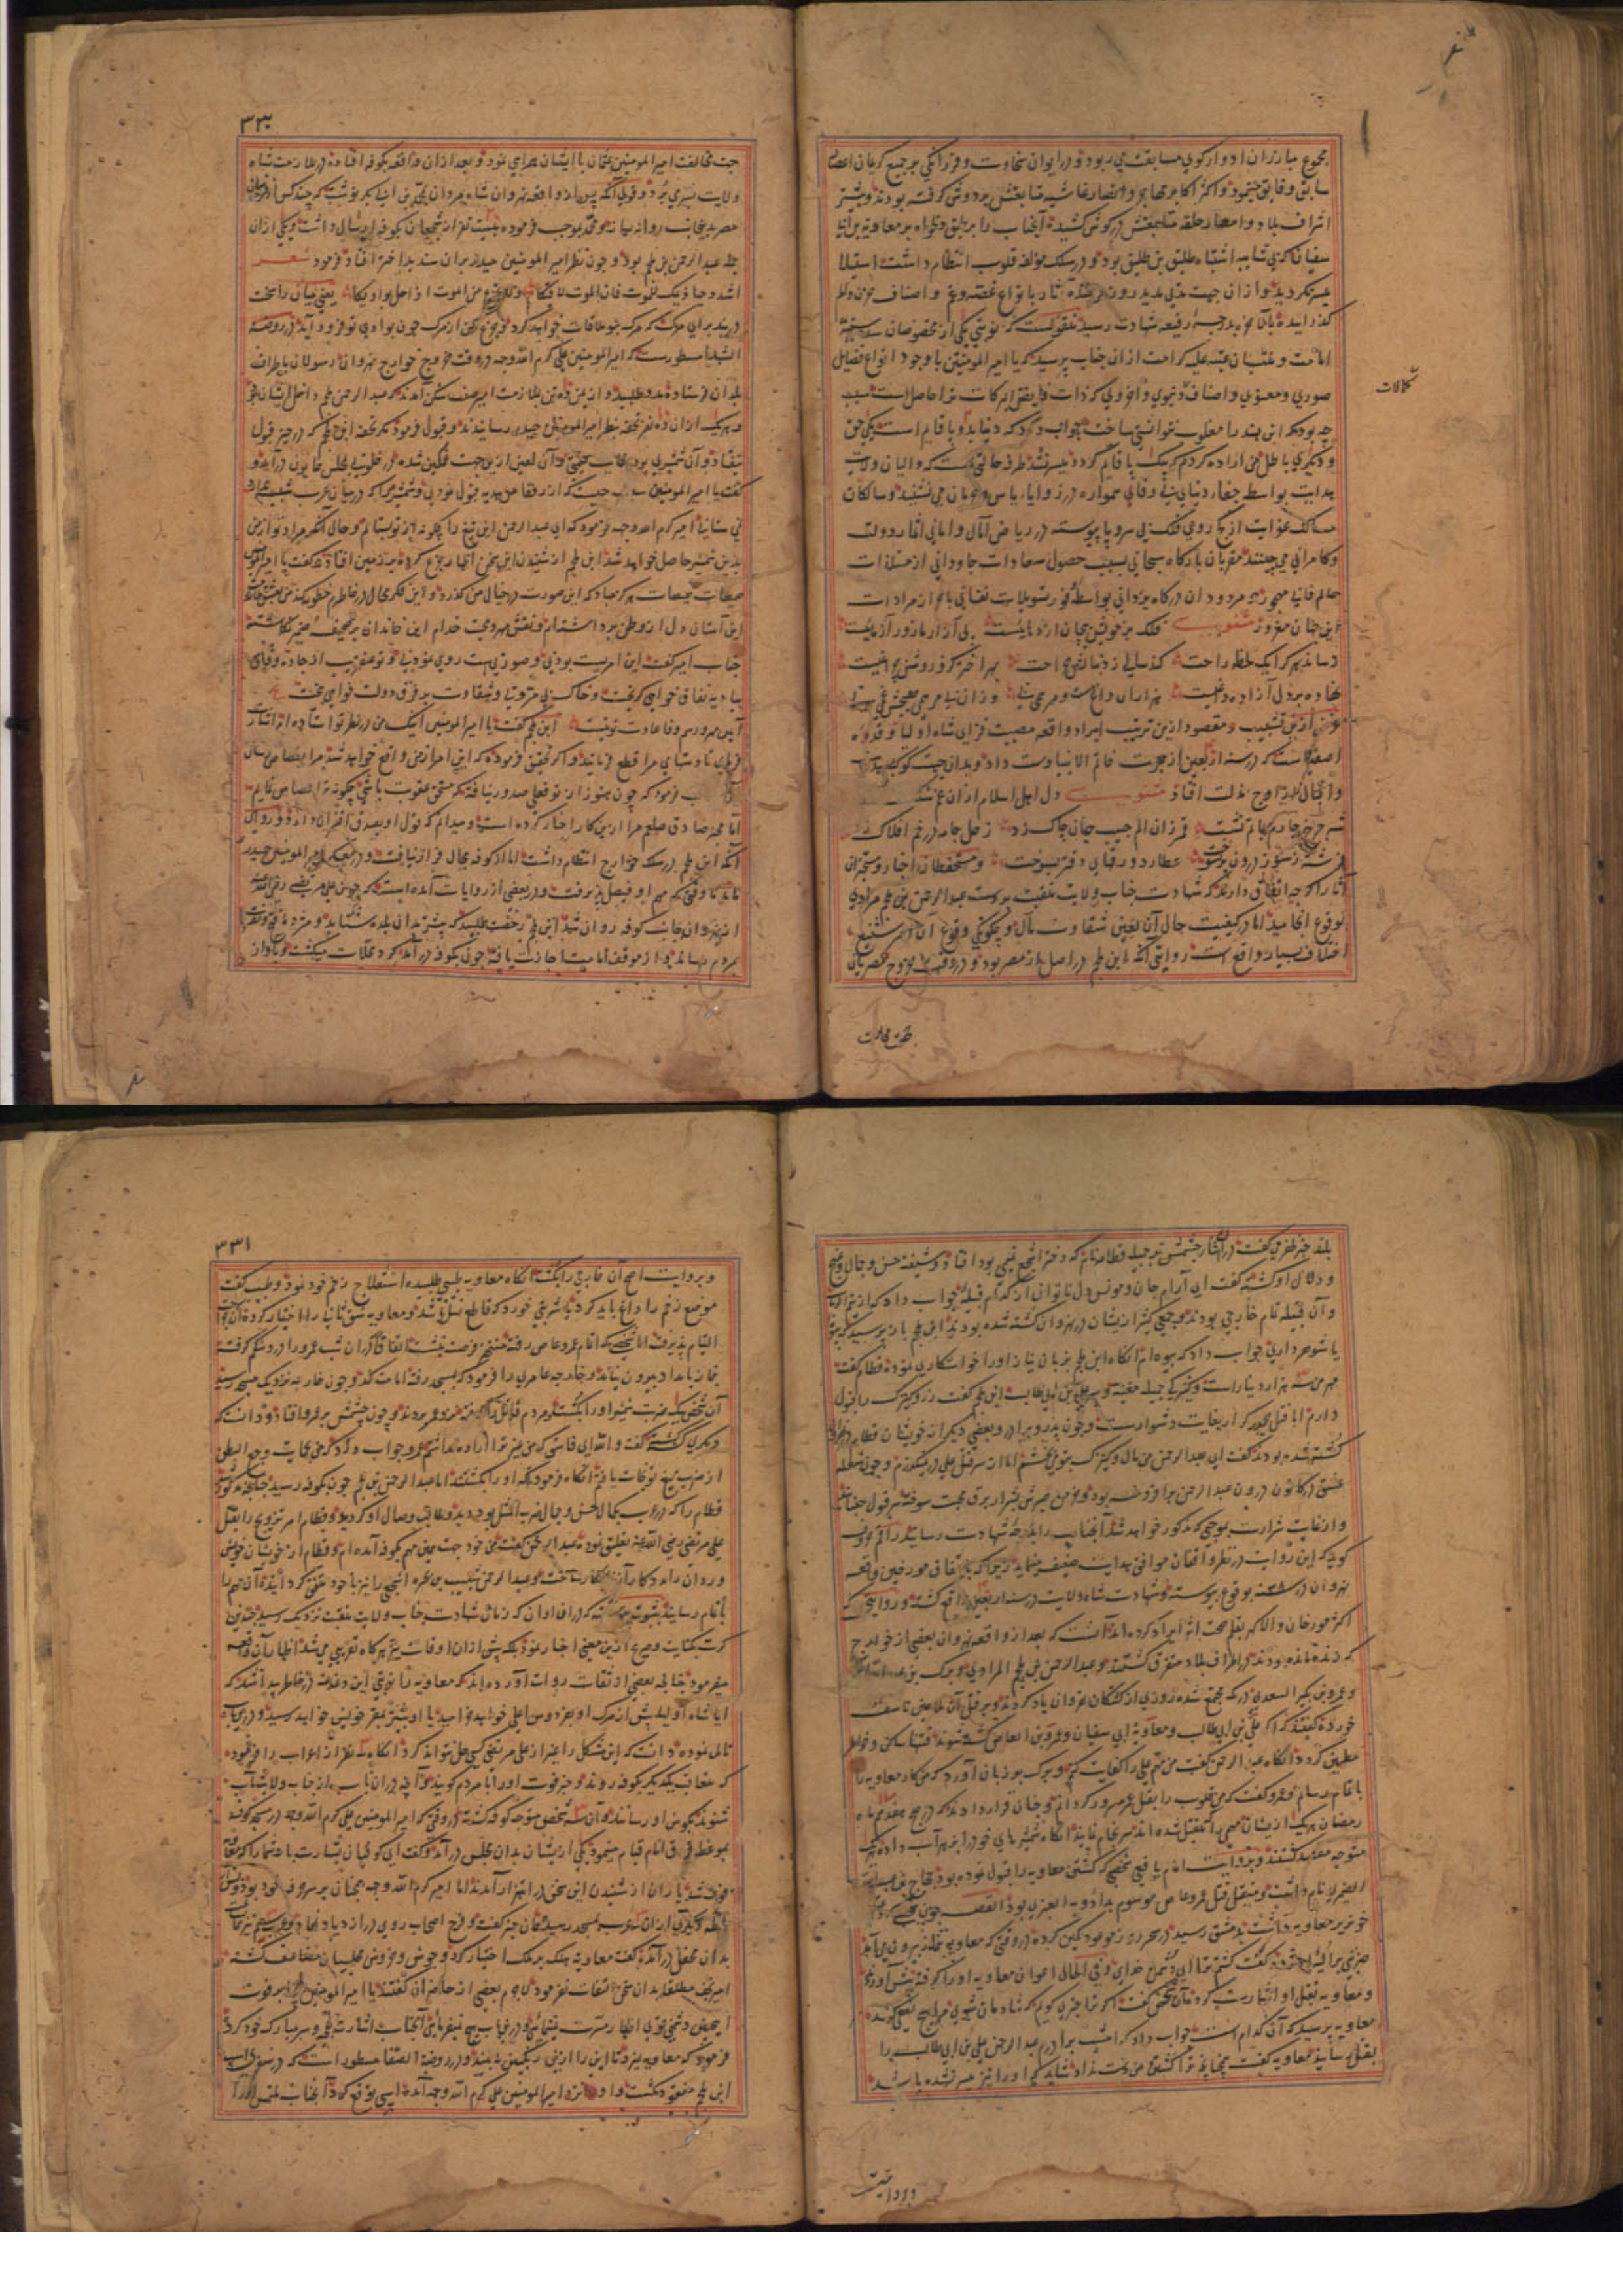 مجموع مبارزان ادوار کوی مسابقت می ربود و در ایوان سخاوت و فرزانگی بر جمیع کریمان اعصار
سابق و فایق می نمود و اکثر اکابر مهاجر و انصار غاشیه متابعتش بر دوش گرفته بودند و بیشتر
اشراف بلاد و امصار حلقه متابعتش در گوش کشیده آنجناب را بر معاویه بن ابی
سفیان که بی شایبه اشتباه طلیق بن طلیق بود و در سلک مولفه قلوب انتظام داشت استیلا
میسر نگردید و ازان جهت مدتی مدید درون تا بانواع غصه و غم و اصناف حزن و الم
گذرانیده بدرجه رفیعه شهادت رسید منقولست که نوبتی یکی از مخصوصان سده
امامت و علیه کرامت ازان جناب پرسید که یا امیر المومنین با وجود انواع فضایل
کمالات
صوری و معنوی و اصناف دنیوی و اخروی که ذات فایض البرکات ترا حاصل است سبب
چه بود که ابن هند را مغلوب نتوانستی ساخت جواب داد که دنیا بدو پا قایم است یکی حق
و دیگری باطل من اراده کردم که بیک پا قایم گردد میسر نشد طرفه حالتی است که والیان ولایت
هدایت بواسطه جفای دنیای بی وفای همواره در زوایا یاس و حرمان می نشینند و سالکان
مسالک غوایت از کج روی فلک بی سر و پا پیوسته در ریاض آمال و امانی دولت
و کامرانی می چینند مقربان بارگاه سبحانی بسبب حصول سعادات جاودانی از مستلذات
عالم فانی مهجور و مردودان درگاه یزدانی بواسطه تسویلات نفسانی از مرادات
این جهان مغرور مثنوی فلک
رساند بهر کرا یک لحظه راحت
نهاده بر دل آزاده
غرض ازین تشبیب و مقصود ازین ترتیب ایراد واقعه مصیبت فزای شاه اولیا و قدوه
اصفیاست که در سنه اربعین از هجرت خاتم الانبیا دست داد و بدان جهت کوکب
و اقبال از اوج بذلت افتاد مثنوی دل اهل اسلام ازان غم شکست
قمر زان الم جیب جان چاک زد زحل جامه در خم افلاک
عطارد دفتر بسوخت و مستحفظان اخبار و مستخبران
آثار اگرچه اتفاق دارند که شهادت جناب ولایت منقبت بدست عبد الرحمن بن ملجم مرادی
بوقوع انجامید اما در کیفیت حال آن لعین شقاوت مآل و چگونگی وقوع آن امر شنیع
اختلاف بسیار واقع است روایتی آنکه ابن ملجم در اصل از مصر بود و در وقت خروج مصریان
جهت مخالفت
۳۳۰
جهت مخالفت امیر المومنین عثمان با ایشان همراهی نمود و بعد ازان واقعه بکوفه افتاده در ملازمت شاه
ولایت بسر می برد و قولی آنکه پس از واقعه نهروان شاه مردان بمحمد بن ابی بکر نوشت که چند کس از
مصر بدینجانب روانه نمایند و محمد بموجب فرموده بیست نفر از شجعان بکوفه ارسال داشت و یکی ازان
جمله عبد الرحمن بن ملجم بود و چون نظر امیر المومنین حیدر بران بد اختر افتاد فرمود شعر
اشدد حیازیمک للموت فان الموت لاقیکا و لا تجزع من الموت اذا حل بوادیکا یعنی میان را سخت
در بند برای مرگ که مرگ بتو ملاقات خواهد کرد و جزع مکن از مرگ چون بوادی تو فرود آید در روضة
الشهدا مسطورست که امیر المومنین علی کرم الله وجه در وقت خروج خوارج نهروان رسولان باطراف
بلدان فرستاده مدد طلبید و از یمن ده تن بملازمت امیر آمدند که عبد الرحمن ملجم داخل ایشان بود
و هر یک ازان ده نفر تحفه بنظر امیر المومنین حیدر رسانیدند و قبول فرمود مگر تحفه ابن ملجم که در حیز قبول
نیفتاد و آن شمشیری بود و آن لعین ازین جهت غمگین شده در خلوت بمجلس همایون درآمد و
گفت یا امیر المومنین سبب چیست که از رفقا من هدیه قبول نمودی و شمشیر مرا که در میان عرب
نمی ستانی امیر کرم الله وجه فرمود که ای عبد الرحمن این تیغ را چگونه از تو بستانم و حال آنکه مراد تو از من
بدین شمشیر حاصل خواهد شد ابن ملجم از شنیدن این سخن اظهار جزع کرده بر زمین افتاد و گفت یا امیر المومنین
هیهات هیهات هرگز مباد که این صورت در خیال من گذرد و این فکر محال در خاطرم خطور کند من
این آستان دل از وطن برداشته ام و نقش مهر و محبت خدام این خاندان بر صحیفه ضمیر نگاشته
جناب امیر گفت این امریست بودنی و صورتیست روی نمودنی و تو عنقریب از جاده وفا
ببادیه نفاق خواهی گریخت و خاک بی مروتی و شقاوت بر فرق دولت خواهی بیخت
آیین مهر و رسم وفا عادت تو نیست ابن ملجم گفت یا امیر المومنین اینک من در نظر تو استاده ام اشارت
فرمای تا دستهای مرا قطع نمایند و اگر تحقیق فرموده که این امر از من واقع خواهد شد مرا بقصاص رسان
فرمود که چون هنوز از تو فعلی صدور نیافته که مستحق عقوبت باشی چگونه ترا قصاص نمایم
اما مخبر صادق صلعم مرا ازین کار اخبار کرده است و میدانم که قول او بصدق اقتران دارد و روایتی
آنکه ابن ملجم در سلک خوارج انتظام داشت اما از کوفه مجال فرار نیافت و در معسکر امیر المومنین حیدر
ماند تا وقتی که مهم او فیصل پذیرفت و در بعضی از روایات آمده است که چون علی مرتضی رضی الله عنه
از نهروان بجانب کوفه روان شد ابن ملجم رخصت طلبید که پیشتر بدان بلده شتابد و مژده فتح
بمردم رساند و از موقف امامت اجازت یافته چون بکوفه درآمد گرد محلات میگشت و بآواز
بلند خبر ظفر می گفت در آن اثنا چشمش بر جمیله قطامه نام که دختر اشجع تیمی بود افتاد و شیفته حسن و جمال و غنج
و دلال او گشته گفت ای آرام جان و مونس دل ناتوان از کدام قبیله جواب داد که از تیم الرباب
و آن قبیله تمام خارجی بودند و جمعی کثیر از ایشان در نهروان کشته شده بودند ابن ملجم باز پرسید که
یا شوهر داری جواب داد که بیوه ام آنگاه ابن ملجم بزبان نیاز او را خواستگاری نموده قطام گفت
مهر من سه هزار دینارست و کنیزکی جمیله مغنیه و سر علی بن ابی طالب ابن ملجم گفت زر و کنیزک را قبول
دارم اما قتل حیدر کرار بغایت دشوارست و چون پدر و برادر و بعضی دیگر از خویشان قطام در نهروان
کشته شده بودند گفت ای عبد الرحمن من مال و کنیزک بتو می بخشم اما از سر قتل علی در نمیگذرم و چون شعله
عشق در کانون درون عبد الرحمن برافروخته بود و خرمن صبرش بشرار برق محبت سوخته قبول
و از غایت شرارت بموجبی که مذکور خواهد شد آنجناب را بدرجه شهادت رسانید راقم حروف
گوید که این روایت در نظر واقفان مواقف بدایت ضعیف مینماید زیرا که باتفاق مورخین واقعه
نهروان در سنه ۳۸ بوقوع پیوسته و شهادت شاه ولایت در سنه اربعین واقع گشته و روایتی که
اکثر مورخان ایراد کرده اند آنست که بعد از واقعه نهروان بعضی از خوارج
که زنده مانده بودند در اطراف بلاد متفرق گشتند و عبد الرحمن بن ملجم المرادی و برک بن عبد الله
و عمرو بن بکیر السعدی در مکه مجتمع شده روزی از کشتگان نهروان یاد کردند و بر قتل آن ملاعین تاسف
خورده گفتند که اگر علی بن ابی طالب و معاویه ابی سفیان و عمرو بن العاص کشته شوند فتنها ساکن و خواطر
مطمئن گردد آنگاه عبد الرحمن گفت من مهم علی را کفایت کنم و برک بر زبان آورد که من کار معاویه را
باتمام رسانم و عمرو گفت که من قلوب را بقتل عمرو مسرور گردانم و چنان قرار دادند که در صبح هفدهم ماه
رمضان هر یک از ایشان مهمی را که متقبل شده اند سرانجام نمایند آنگاه شمشیرهای خود را بزهر آب داده هر یک
متوجه مقصد گشتند و بروایت امام یافعی شخصی که کشتن معاویه را قبول نموده بود حجاج بن عبد الله
الضریر نام داشت و متقبل قتل عمرو عاص موسوم بدادویه العنبری بود القصه چون
خونریز معاویه داشت بدمشق رسید در سحر روز موعود کمین کرده در وقتی که معاویه بنماز بیرون می آمد
ضربتی بر الیش زده گفت کشتم ترا ای دشمن خدای و فی الحال اعوان معاویه او را گرفته پیش آوردند
و معاویه بقتل او اشارت کرد آن شخص گفت اگر ترا خبری گویم که شادمان شوی مرا هیچ نفعی کند
معاویه پرسید که آن کدام است جواب داد که امشب برادرم عبد الرحمن علی بن ابی طالب را
بقتل رساند معاویه گفت چنانچه ترا کشتن من دست نداد شاید که او را نیز میسر نشده باشد
و بروایت
۳۳۱
و بروایت اصح آن خارجی را بکشت آنگاه معاویه طبیبی طلبیده استعلاج زخم خود نمود و طبیب گفت
موضع زخم را داغ باید کرد یا شربتی خورد که قاطع نسل باشد و معاویه شق ثانی را اختیار کرده آن جراحت
التیام پذیرفت اما شخصی که باتمام عمرو عاص رفته منتهز فرصت بنشست اتفاقا در آن شب عمرو را درد شکم گرفته
بنماز بامداد بیرون نیامد و خارجه عامری را فرمود که بمسجد رفته امامت کند و چون خارجه نزدیک بمسجد رسید
آن شخص بیک ضربت تیغ او را بکشت و مردم قاتل را گرفته نزد عمرو بردند و چون چشمش بر عمرو افتاد و دانست که
دیگری کشته گفت والله ای فاسق که من غیر ترا اراده نداشتم عمرو جواب داد که من بحمایت وجع البطن
از ضربت تیغ تو نجات یافتم آنگاه فرمود که او را بکشتند اما عبد الرحمن بن ملجم چون بکوفه رسید
قطام را که در عرب بکمال حسن و جمال ضرب المثل بود دید و طالب وصال او گردید و قطام امر تزویج را بقتل
علی مرتضی رضی الله عنه تعلیق نموده عبد الرحمن گفت من خود جهت همین مهم بکوفه آمده ام و قطام از خویشان خویش
وردان را مددکار آن نابکار ساخت و عبد الرحمن شبیب بن بجره اشجعی را نیز با خود متفق گردانیده آن مهم را
باتمام رسانید بثبوت پیوسته که در آن اوان که زمان شهادت جناب ولایت منقبت نزدیک رسید چندین
کرت بکنایت و صریح ازین معنی اخبار نمود بلکه پیش ازان اوقات نیز هرگاه تقریبی می شد اظهار آن واقعه
میفرمود چنانچه بعضی از ثقات روات آورده اند که معاویه را نوبتی این دغدغه در خاطر پیدا شد که
آیا شاه اولیا پیش از مرگ او بفردوس اعلی خواهد خرامید یا او پیشتر بمقر خویش خواهد رسید و درین باب
تاملی نموده دانست که این مشکل را غیر از علی مرتضی کسی حل نتواند کرد آنگاه سه نفر از اعراب را فرموده
که متعاقب یکدیگر بکوفه روند و خبر فوت او را با مردم گویند و آنچه در آن باب از جناب ولایتمآب
شنوند بگوش او رسانند و آن سه شخص متوجه کوفه گشته در وقتی که امیر المومنین علی کرم الله وجه در مسجد کوفه
بموعظه فرق انام قیام مینمود یکی از ایشان بدان مجلس درآمد و گفت ای کوفیان بشارت باد شما را که معاویه
فوت شد یاران از شنیدن این سخن در اهتزاز آمدند اما امیر کرم الله وجه همچنان بر سر وعظ خود بود و
دیگری ازان اعراب بمسجد رسیده همان خبر گفت و فرح اصحاب روی در ازدیاد نهاد و عرب سیم نیز
بدان محفل درآمده گفت معاویه ملک بر ملک اختیار کرد و جوش و خروش مجلسیان متضاعف گشته
امیر نجف مطلقا بدان سخن التفات نفرمود لاجرم بعضی از حاضران گفتند یا امیر المومنین بر فوت
اینچنین دشمنی قوی اظهار مسرت نمینمائی و در جواب هیچ نمیفرمائی آنجناب اشارت بلحیه و سر مبارک خود کرد
فرمود که معاویه نمیرد تا این را ازین رنگین نه بیند و در روضة الصفا مسطور است که در
ابن ملجم نزد امیر المومنین علی کرم الله وجه آمده اسپی توقع کرد و آنجناب ملتمس او را